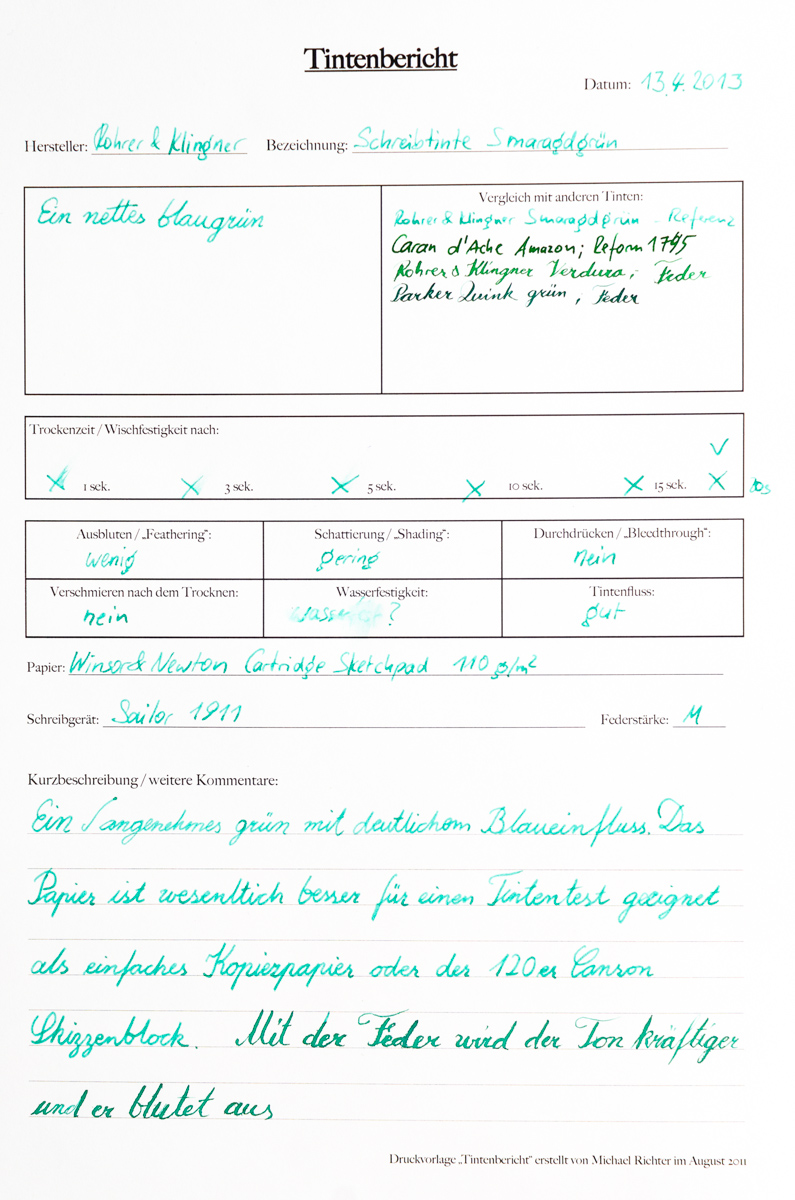 Tintenbericht
Datum: 13.4.2013
Hersteller: Rohrer & Klingner Bezeichnung: Schreibtinte Smaragdgrün
Ein nettes blaugrün
Vergleich mit anderen Tinten:
Rohrer & Klingner Smaragdgrün - Referenz
Caran d'Ache Amazon; Reform 1745
Rohrer & Klingner Verdura; Feder
Parker Quink grün, Feder
Trockenzeit / Wischfestigkeit nach:
✓
X 1 sek. X 3 sek. X 5 sek. X 10 sek. X 15 sek. X 20s
Ausbluten / „Feathering“: Schattierung / „Shading“: Durchdrücken / „Bleedthrough“:
wenig gering nein
Verschmieren nach dem Trocknen: Wasserfestigkeit: Tintenfluss:
nein wasserfest? gut
Papier: Winsor & Newton Cartridge Sketchpad 110 g/m²
Schreibgerät: Sailor 1911 Federstärke: M
Kurzbeschreibung / weitere Kommentare:
Ein angenehmes grün mit deutlichem Blaueinfluss. Das
Papier ist wesenltich besser für einen Tintentest geeignet
als einfaches Kopierpapier oder der 120er Canson
Skizzenblock. Mit der Feder wird der Ton kräftiger
und er blutet aus
Druckvorlage „Tintenbericht“ erstellt von Michael Richter im August 2011